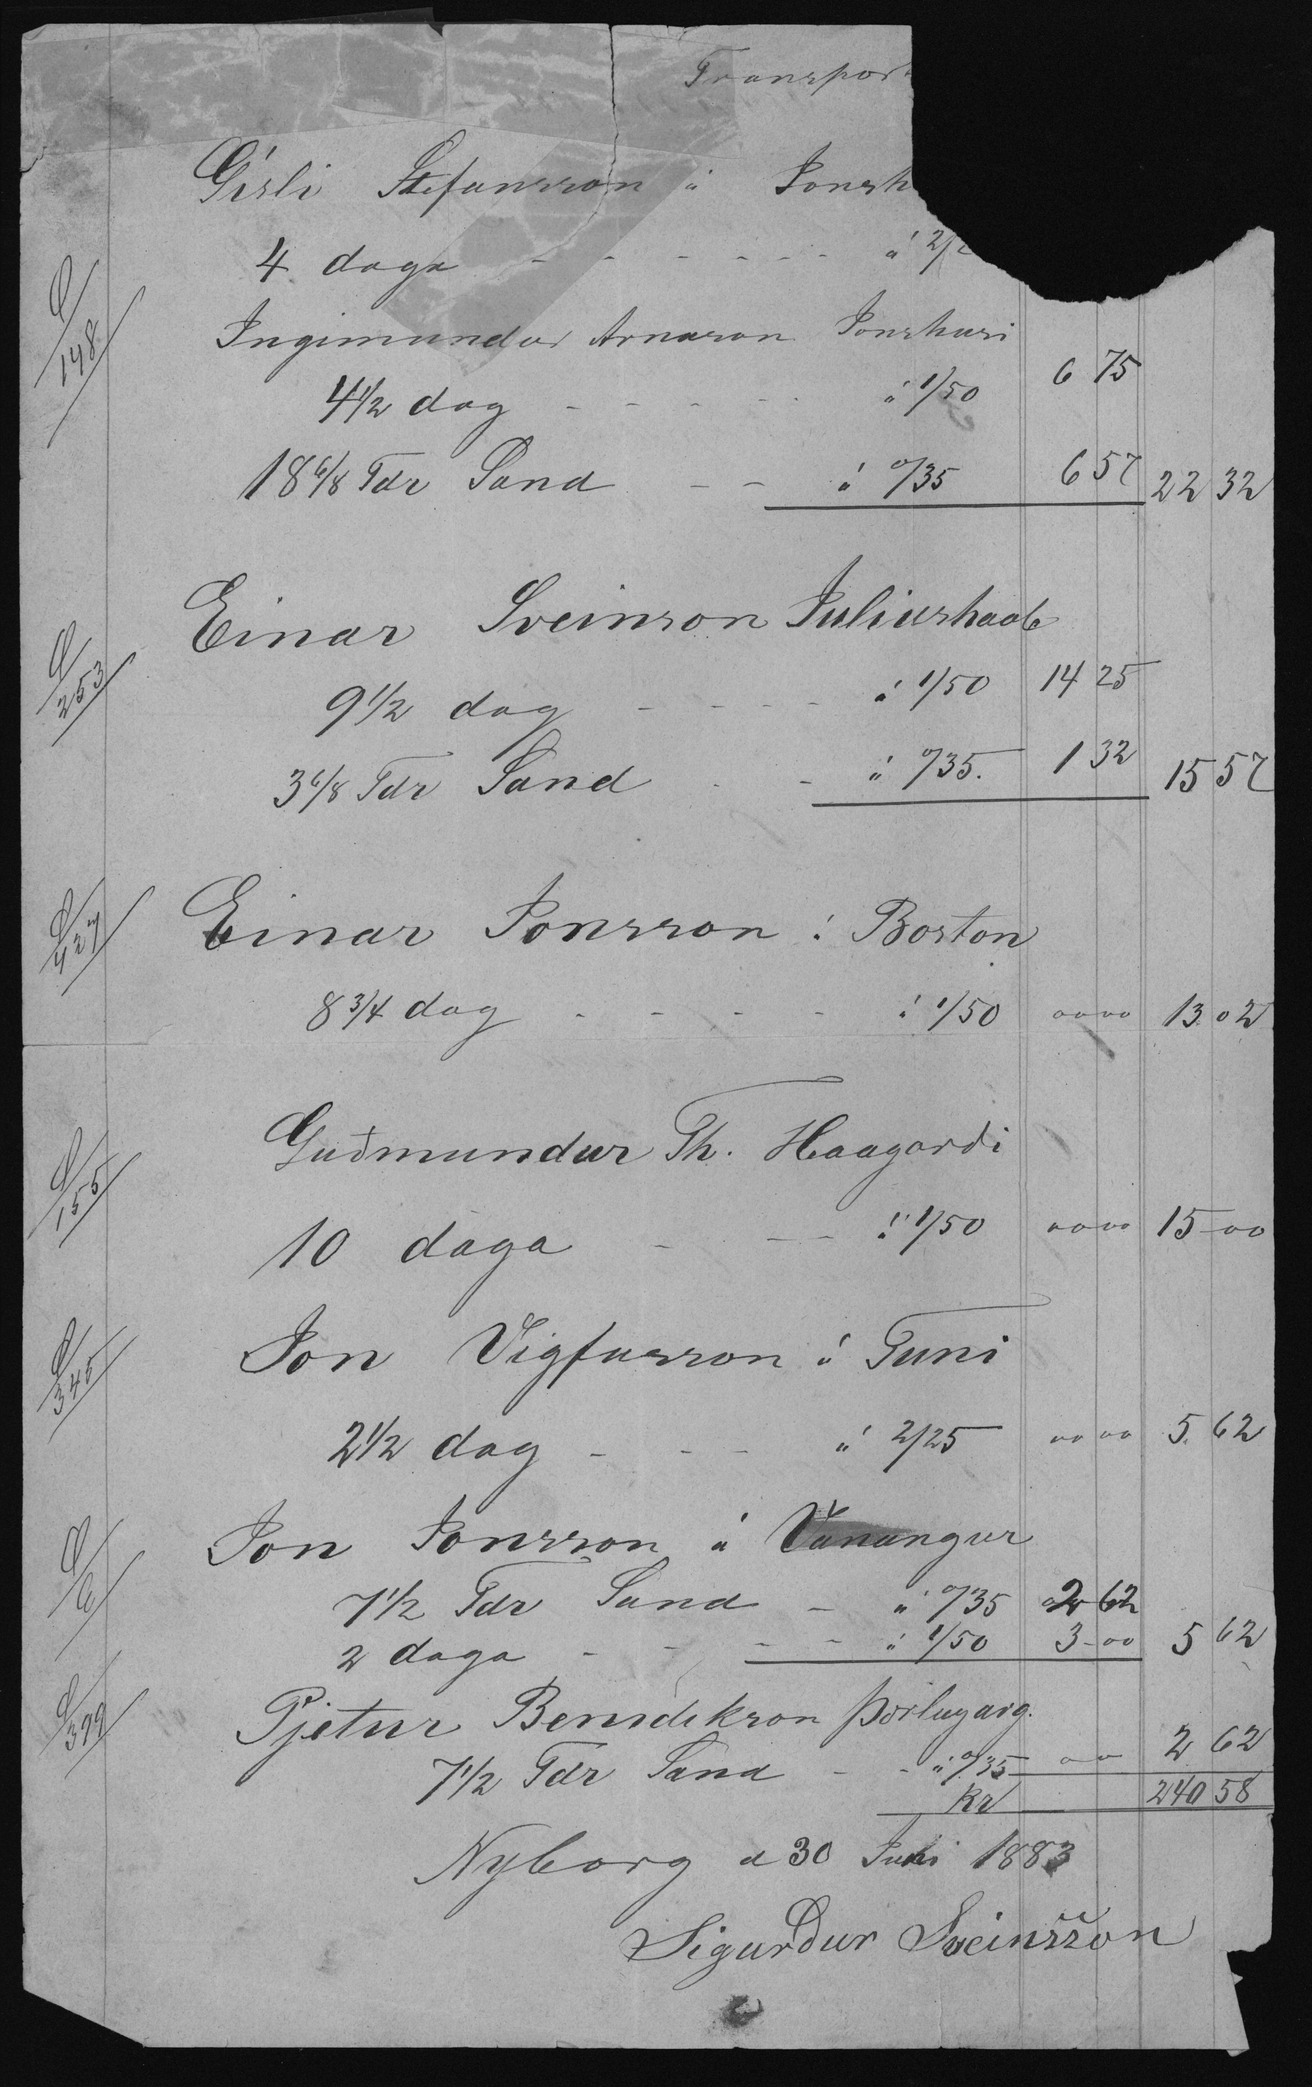 Transport
Gísli Stefansson á Jonsh
4 daga - - - - - - á 2/2
148
Ingimundur Arnason Jonshusi
4 1/2 dag - - - - - á 1/50 6 75
18 6/8 Tdr Sand - - á 0/35 6 57 22 32
Einar Sveinson Juliushaab
253
9 1/2 dag - - - - - á 1/50 14 25
3 6/8 Tdr Sand - - á 0/35. 1 32 15 57
427
Einar Jonsson í Boston
8 3/4 dag - - - - - á 1/50 oo oo 13 02
155
Guðmundur Th. Haagarði
10 daga - - - á 1/50 oo oo 15 - oo
345
Jon Vigfusson á Tuni
2 1/2 dag - - - á 2/25 oo oo 5. 62
Jon Jonsson á Vanangur
7 1/2 Tdr Sand - á 0/35 2 62
2 daga - - - - - á 1/50 3 - oo 5 62
399
Pjetur Benidikson Þorlaugarg.
7 1/2 Tdr Sand - - á 0/35 oo 2 62
Kr 240 58
Nyborg d 30 Juni 1883
Sigurður Sveinsson